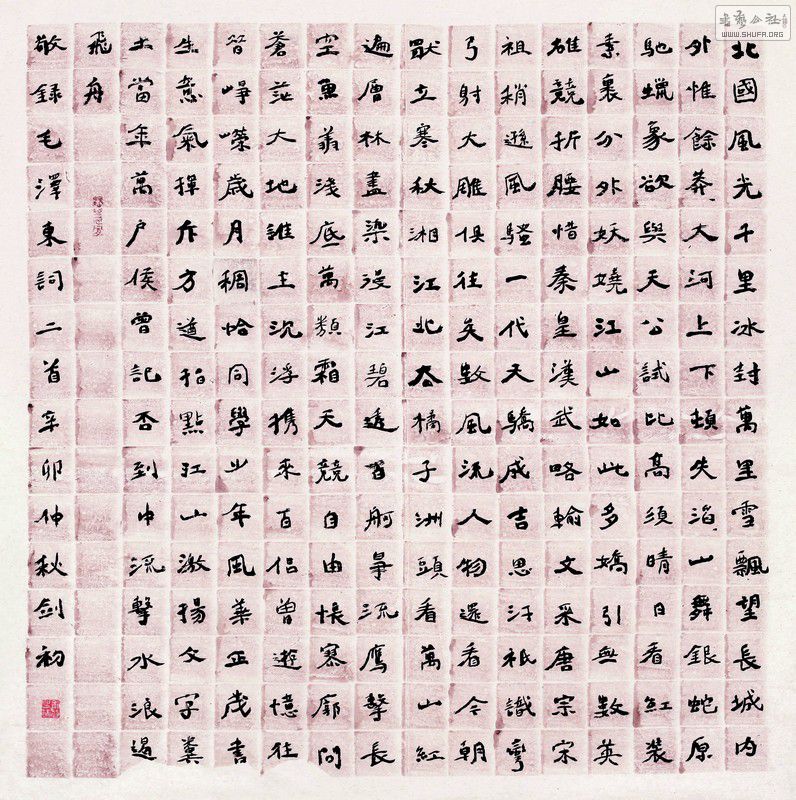 北國風光千里冰封萬里雪飄望長城内
外惟餘莽大河上下頓失滔山舞銀蛇原
馳蠟象欲與天公試比高須晴日看紅裝
素裹分外妖嬈江山如此多嬌引無數英
雄競折腰惜秦皇漢武略輸文采唐宗宋
祖稍遜風騷一代天驕成吉思汗祇識彎
弓射大雕俱往矣數風流人物還看今朝
獨立寒秋湘江北去橘子洲頭看萬山紅
遍層林盡染漫江碧透百舸爭流鷹擊長
空魚翔淺底萬類霜天競自由悵寥廓問
蒼茫大地誰主沉浮攜來百侶曾遊憶往
昔崢嶸歲月稠恰同學少年風華正茂書
生意氣揮斥方遒指點江山激揚文字糞
土當年萬戶侯曾記否到中流擊水浪遏
飛舟
敬録毛澤東詞二首辛卯仲秋劍初
WWW.SHUFA.ORG